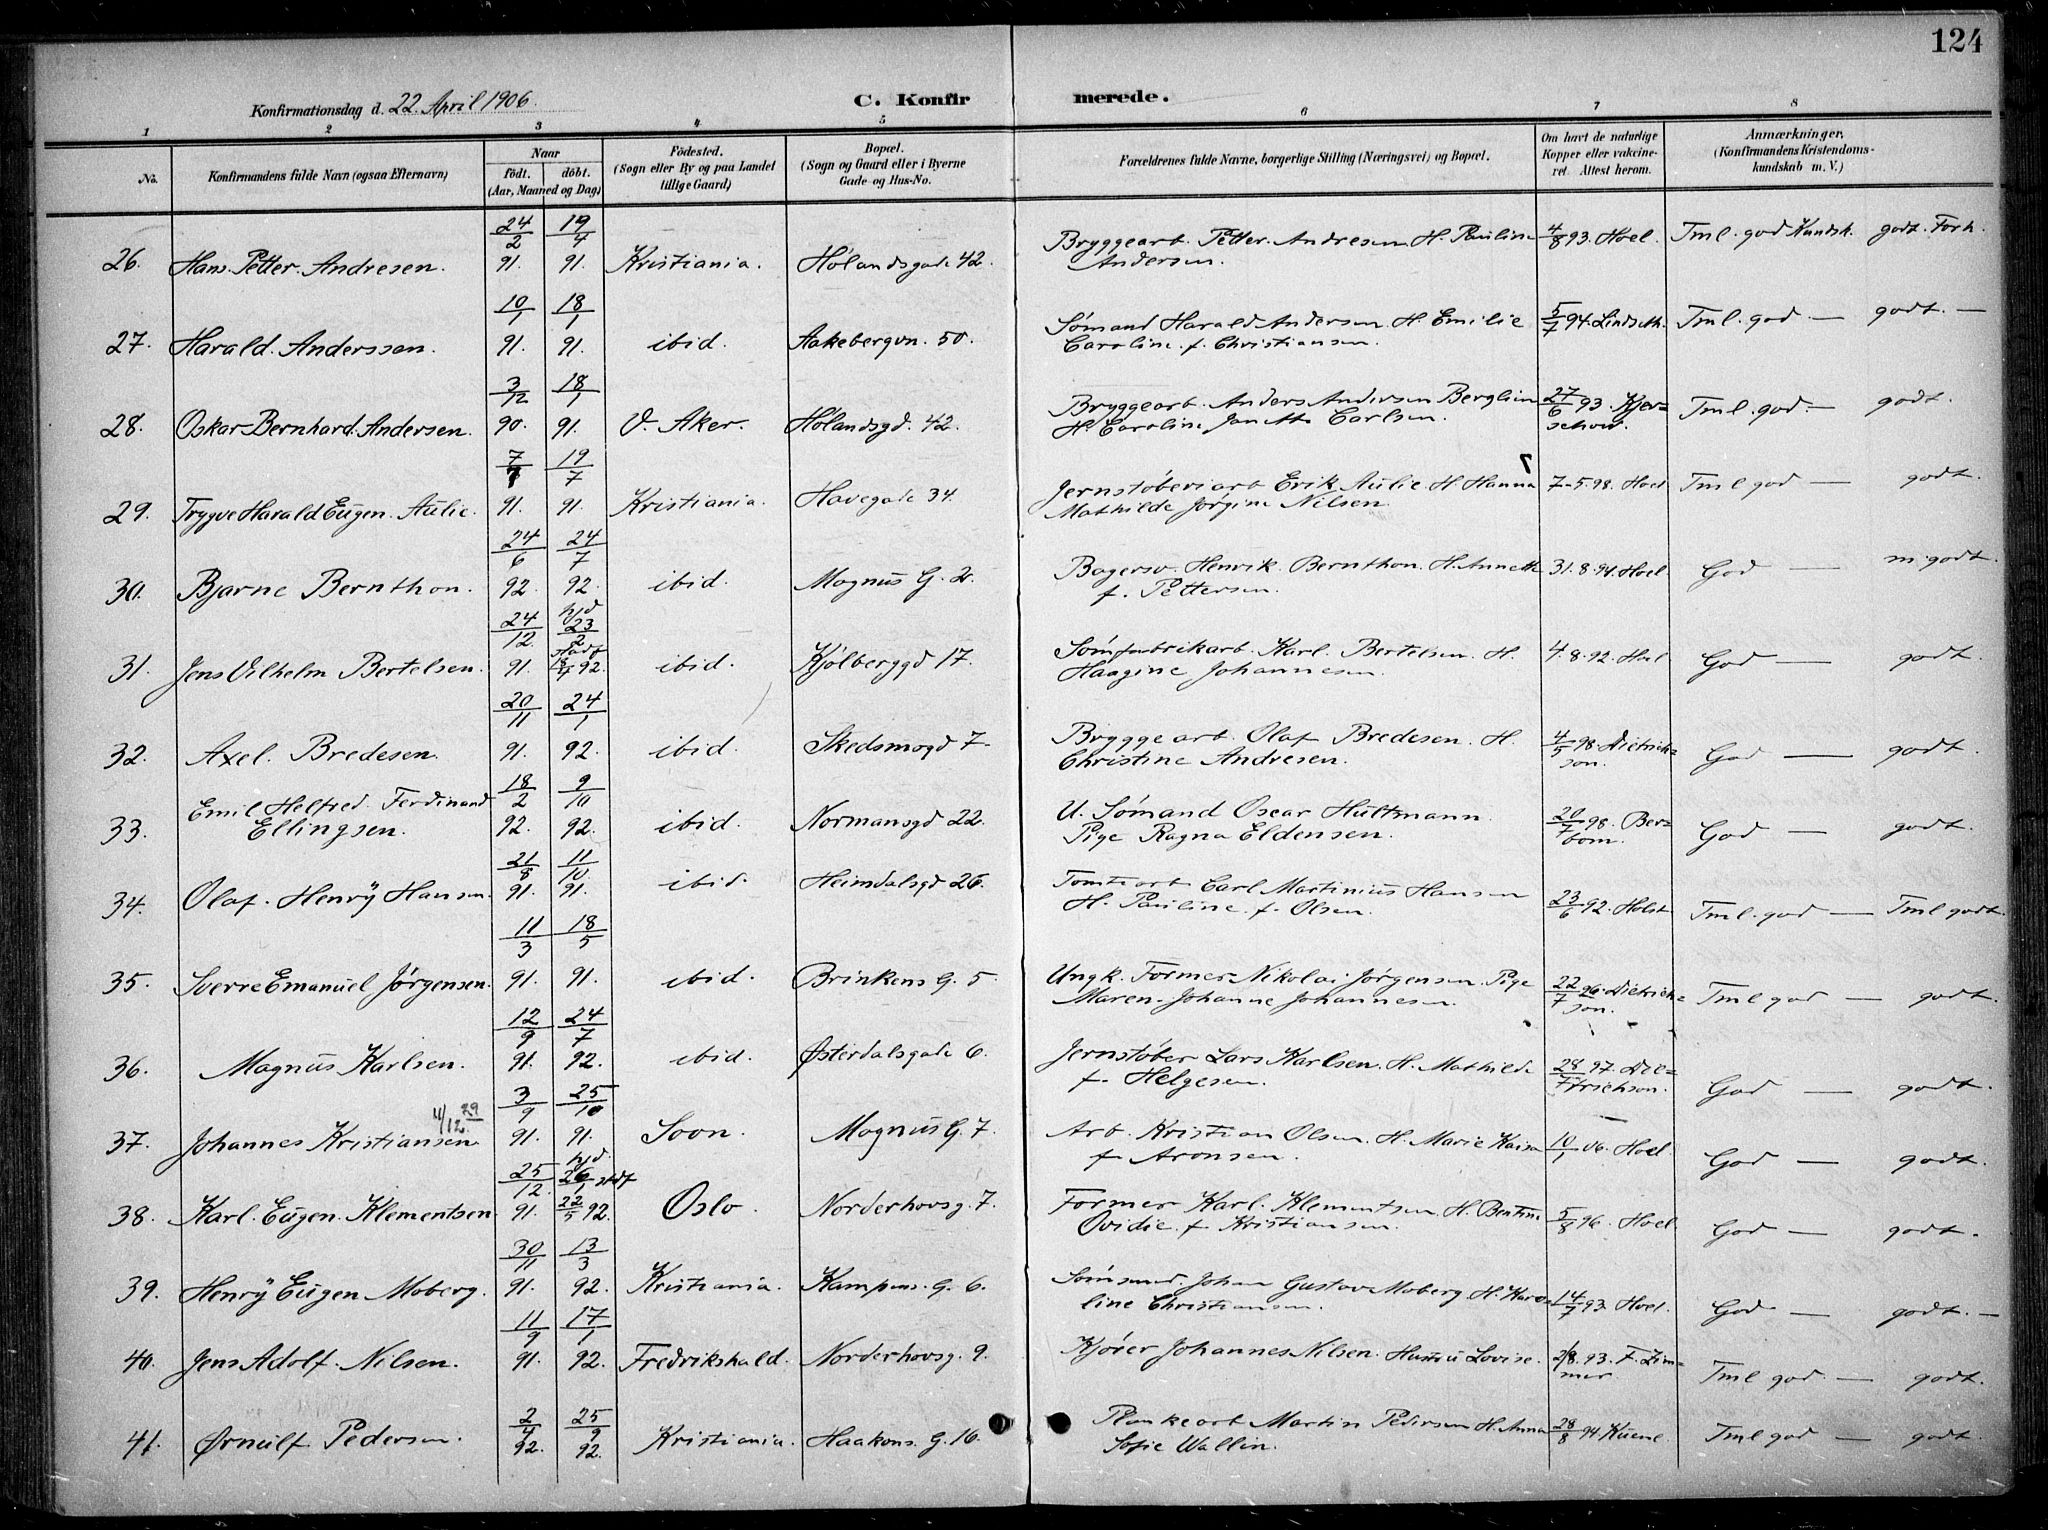 124
Konfirmationsdag d. 22. April 1906.
C. Konfirmerede.
1 2 3 4 5 6 7 8
No.
Konfirmandens fulde Navn (ogsaa Efternavn)
Naar
födt. döbt.
(Aar, Maaned og Dag)
Födested.
(Sogn eller By og paa Landet
tillige Gaard)
Bopæl.
(Sogn og Gaard eller i Byerne
Gade og Hus-No.
Forældrenes fulde Navne, borgerlige Stilling (Næringsvei) og Bopæl.
Om havt de naturlige
Kopper eller vakcine-
ret. Attest herom.
Anmærkninger.
(Konfirmandens Kristendoms-
kundskab m. V.)
26. Hans Petter Andresen. 24/2 91. 19/4 91. Kristiania. Hölandsgade 42. Bryggearb. Petter Andresen H. Pauline
Andersen. 4/8 93. Hoel. Tml. god Kundsk. godt. Forh.
27. Harald Anderssen. 10/1 91. 18/1 91. ibid. Aakebergvn. 50. Sømand Harald Andersen. H. Emilie
Caroline f. Christiansen. 5/7 94. Lindseth. Tml. god — godt. —
28. Oskar Bernhard Andersen. 3/12 90. 18/1 91. V. Aker. Hölandsgd. 42. Bryggearb. Anders Andersen Berglien
H. Caroline Janette Carlsen. 27/6 93. Kjer=
schow. Tml. god — godt.
29. Trygve Harald Eugen Aulie. 7/7 91. 19/7 91. Kristiania. Havegade 34. Jernstøberiarb Erik Aulie H Hanna
Mathilde Jørgine Nilsen. 7-5.98. Hoel Tml god — godt.
30. Bjarne Bernthon. 24/6 92. 24/7 92. ibid. Magnus G. 2. Bagersv. Henrik Bernthon. H. Annette
f. Pettersen. 31.8.94. Hoel. God — m. godt.
31. Jens Vilhelm Bertelsen. 24/12 91. hjd 23/2 stadf 18/4 92. ibid. Kjølberggd 17. Sømfabrikarb. Karl Bertelsen. H.
Haagine Johannesen. 4.8.92. Hoel God — godt.
32. Axel Bredesen. 20/11 91. 24/1 92. ibid. Skedsmogd 7. Bryggearb. Olaf Bredesen. H.
Christine Andresen. 4/5 98. Dietrich=
son. God — godt.
33. Emil Helfred Ferdinand
Ellingsen. 18/2 92. 9/10 92. ibid. Normansgd 22. U. Sømand Oscar Hultmann.
Pige Ragna Eldensen. 20/7 98. Ber=
bom. God — godt.
34. Olaf Henry Hansen. 21/8 91. 11/10 91. ibid. Heimdalsgd 26. Tomtearb Carl Martinius Hansen
H. Pauline f. Olsen. 23/6 92. Holst Tml. god — Tml godt.
35. Sverre Emanuel Jørgensen. 11/3 91. 18/5 91. ibid. Brinkens G. 5. Ungk. Former Nikolai Jørgensen. Pige
Maren Johanne Johannesen. 22/7 96. Dietrich=
son. Tml god — godt.
36. Magnus Karlsen. 12/9 91. 24/7 92. ibid. Østerdalsgade 6. Jernstøber Lars Karlsen. H. Mathilde
f. Helgesen. 28/7 97. Die=
trichson. God — godt.
37. Johannes Kristiansen 11/12 29 3/9 91. 25/10 91. Soon. Magnus G. 7. Arb. Kristian Olsen. H. Marie Kaisa
f. Aronsen. 10/1 06. Hoel. God — godt.
38. Karl Eugen Klementsen 25/12 91. hjd 26/1 stdf 22/5 92. Oslo. Norderhovsg. 7. Former Karl Klementsen. H. Bentine
Ovidie f. Kristiansen. 5/8 96. Hoel God — godt.
39. Henry Eugen Moberg. 30/11 91. 13/3 92. Kristiania. Kampens G. 6. Sømsmed Johan Gustav Moberg. H. Karo=
line Christiansen. 14/7 93. Hoel. God — godt. —
40. Jens Adolf Nilsen. 11/9 91. 17/1 92. Fredrikshald. Norderhovsg. 9. Kjører Johannes Nilsen. Hustru Lovise. 2/8. 93. F. Zim=
mer Tml god. — godt.
41. Ørnulf Pedersen. 2/4 92. 25/9 92. Kristiania. Haakons G. 16. Plankearb Martin Pedersen H. Anna
Sofie Wallin. 28/8 94 Kuenl Tml god — godt.